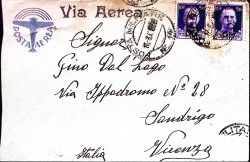 Via Aerea
POSTA AEREA
POSTA MILITARE
Signor
Gino Dal Lago
Via Ippodromo Nº 28
Sandrigo
Vicenza
Italia